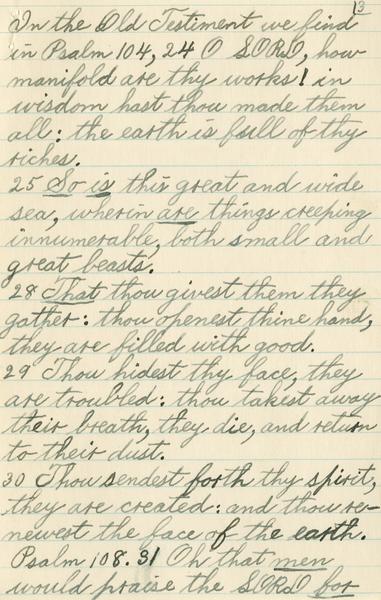 13
In the Old Testiment we find
in Psalm 104, 24 O LORD, how
manifold are thy works! in
wisdom hast thou made them
all: the earth is full of thy
riches.
25 So is this great and wide
sea, wherin are things creeping
innumerable, both small and
great beasts.
28 That thou givest them they
gather: thou openest thine hand,
they are filled with good.
29 Thou hidest thy face, they
are troubled: thou takest away
their breath, they die, and return
to their dust.
30 Thou sendest forth thy spirit,
they are created: and thou re-
newest the face of the earth.
Psalm 108.31 Oh that men
would praise the LORD for